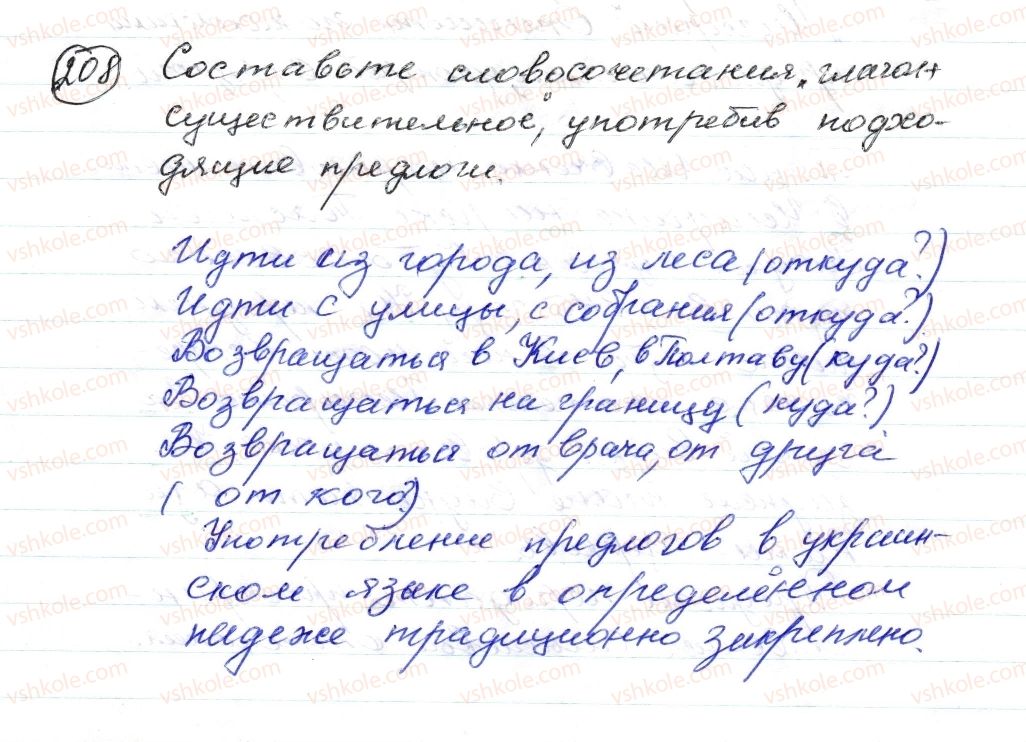 208 Составьте словосочетания „глагол+
существительное", употребив подхо-
дящие предлоги.
Идти из города, из леса (откуда?)
Идти с улицы, с собрания (откуда?)
Возвращаться в Киев, в Полтаву (куда?)
Возвращаться на границу (куда?)
Возвращаться от врача, от друга
( от кого?)
Употребление предлогов в украин-
ском языке в определённом
падеже традиционно закреплено.